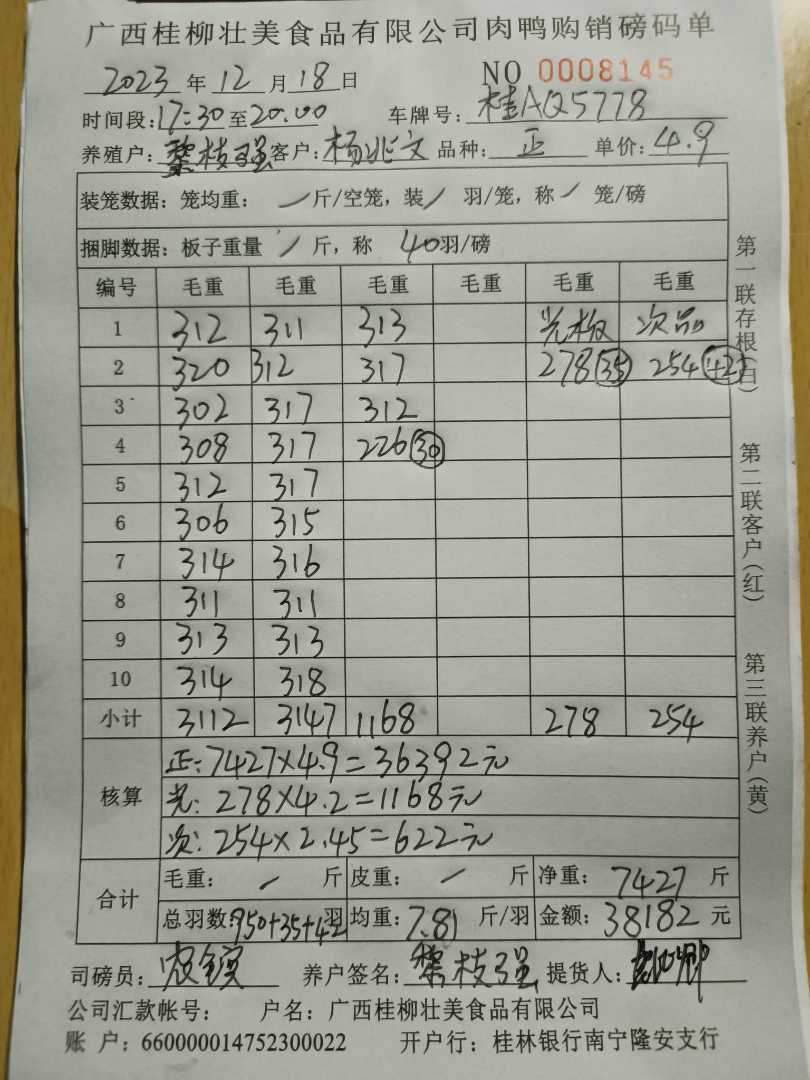 广西桂柳壮美食品有限公司肉鸭购销磅码单
2023 年 12 月 18 日 NO 0008145
时间段: 17:30 至 20:00 车牌号: 桂AQ5778
养殖户: 黎枝强 客户: 杨兆文 品种: 正 单价: 4.9
装笼数据: 笼均重: / 斤/空笼, 装 / 羽/笼, 称 / 笼/磅
捆脚数据: 板子重量 / 斤, 称 40 羽/磅
编号 毛重 毛重 毛重 毛重 毛重 毛重
1 312 311 313 光板 次品
2 320 312 317 278 (35) 254 (42)
3 302 317 312
4 308 317 226 (30)
5 312 317
6 306 315
7 314 316
8 311 311
9 313 313
10 314 318
小计 3112 3147 1168 278 254
核算 正: 7427×4.9=36392元
光: 278×4.2=1168元
次: 254×2.45=622元
合计 毛重: / 斤 皮重: / 斤 净重: 7427 斤
总羽数: 950+35+42 羽 均重: 7.81 斤/羽 金额: 38182 元
司磅员: 养户签名: 黎枝强 提货人:
公司汇款帐号: 户名: 广西桂柳壮美食品有限公司
账 户: 660000014752300022 开户行: 桂林银行南宁隆安支行
第一联存根(白)
第二联客户(红)
第三联养户(黄)